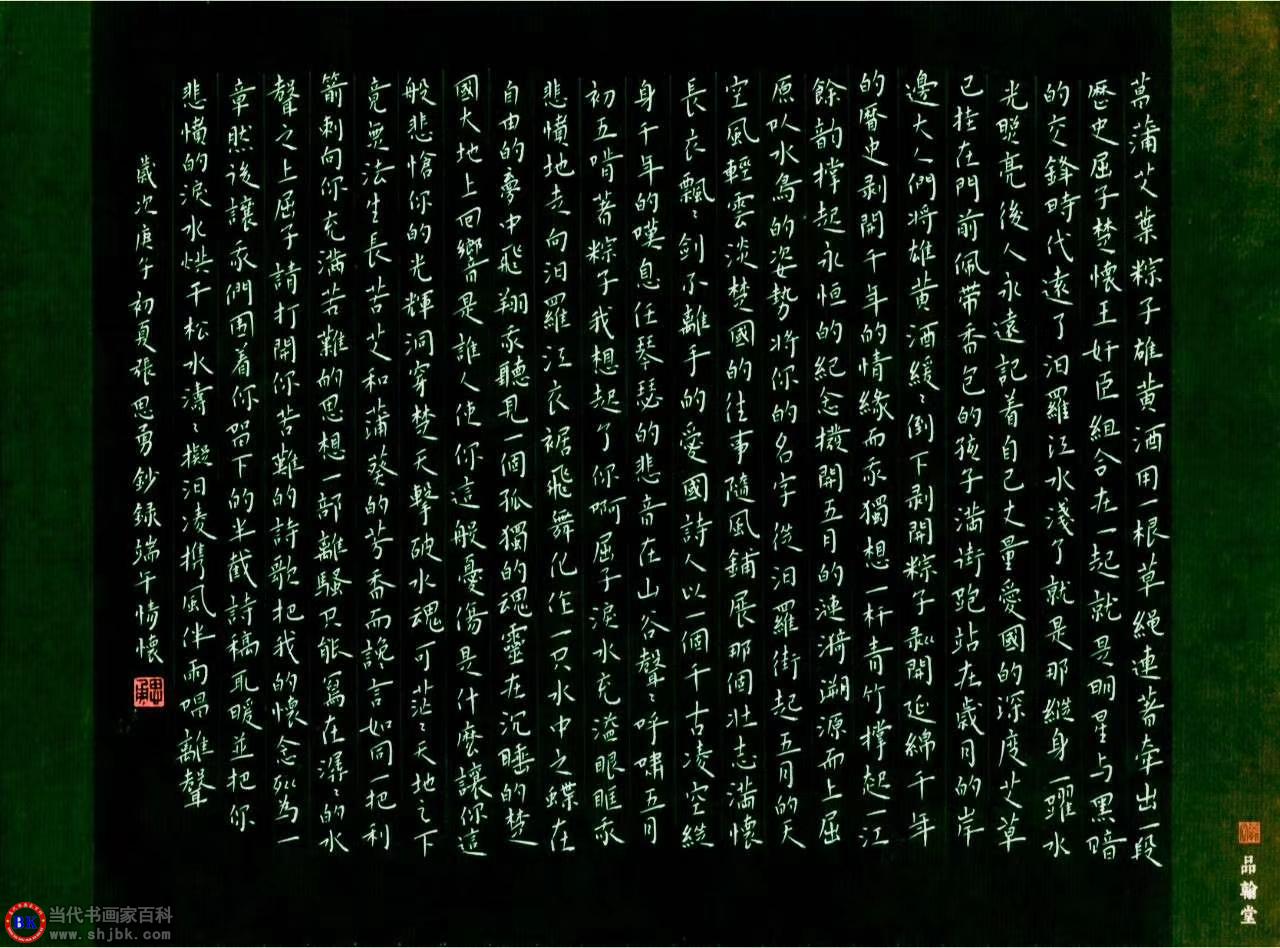 菖蒲艾葉粽子雄黄酒用一根草繩連著牵出一段
歷史屈子楚懷王奸臣組合在一起就是明星与黑暗
的交鋒時代遠了汨羅江水淺了就是那縱身一躍水
光照亮後人永遠記着自己丈量愛國的深度艾草
已挂在門前佩带香包的孩子满街跑站在歲月的岸
邊大人們将雄黄酒緩〻倒下剥開粽子剥開延綿千年
的曆史剥開千年的情緣而我獨想一杆青竹撑起一江
餘韵撑起永恒的紀念撥開五月的漣漪溯源而上屈
原以水鳥的姿勢将你的名字從汨羅街起五月的天
空風輕雲淡楚國的往事隨風鋪展那個壮志满懷
長衣飄〻剑不離手的愛國詩人以一個千古凌空縱
身千年的嘆息任琴瑟的悲音在山谷聲〻呼嘯五月
初五啃著粽子我想起了你啊屈子淚水充溢眼眶我
悲憤地走向汨羅江衣裾飛舞化作一只水中之蝶在
自由的夢中飛翔我聽見一個孤獨的魂靈在沉睡的楚
國大地上回響是誰人使你這般憂傷是什麼讓你這
般悲愴你的光輝洞穿楚天擊破水魂可茫〻天地之下
竟無法生長苦艾和蒲葵的芬香而讒言如同一把利
箭刺向你充满苦難的思想一部離騷只能寫在潺〻的水
聲之上屈子請打開你苦難的詩歌把我的懷念列為一
章然後讓我們围着你留下的半截詩稿取暖並把你
悲憤的淚水烘干松水濤〻擬汨凌携風伴雨唱離聲
歲次庚午初夏張思勇鈔録端午情懷
品翰堂
BK
当代书画家百科
www.shjbk.com